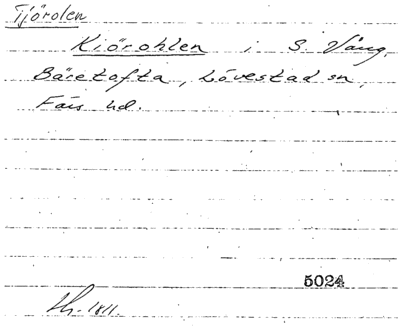 Tjörolen
Kiörohlen i S. Vång,
Bäretofta, Lövestad sn,
Färs hd.
5024
Lh. 1811.